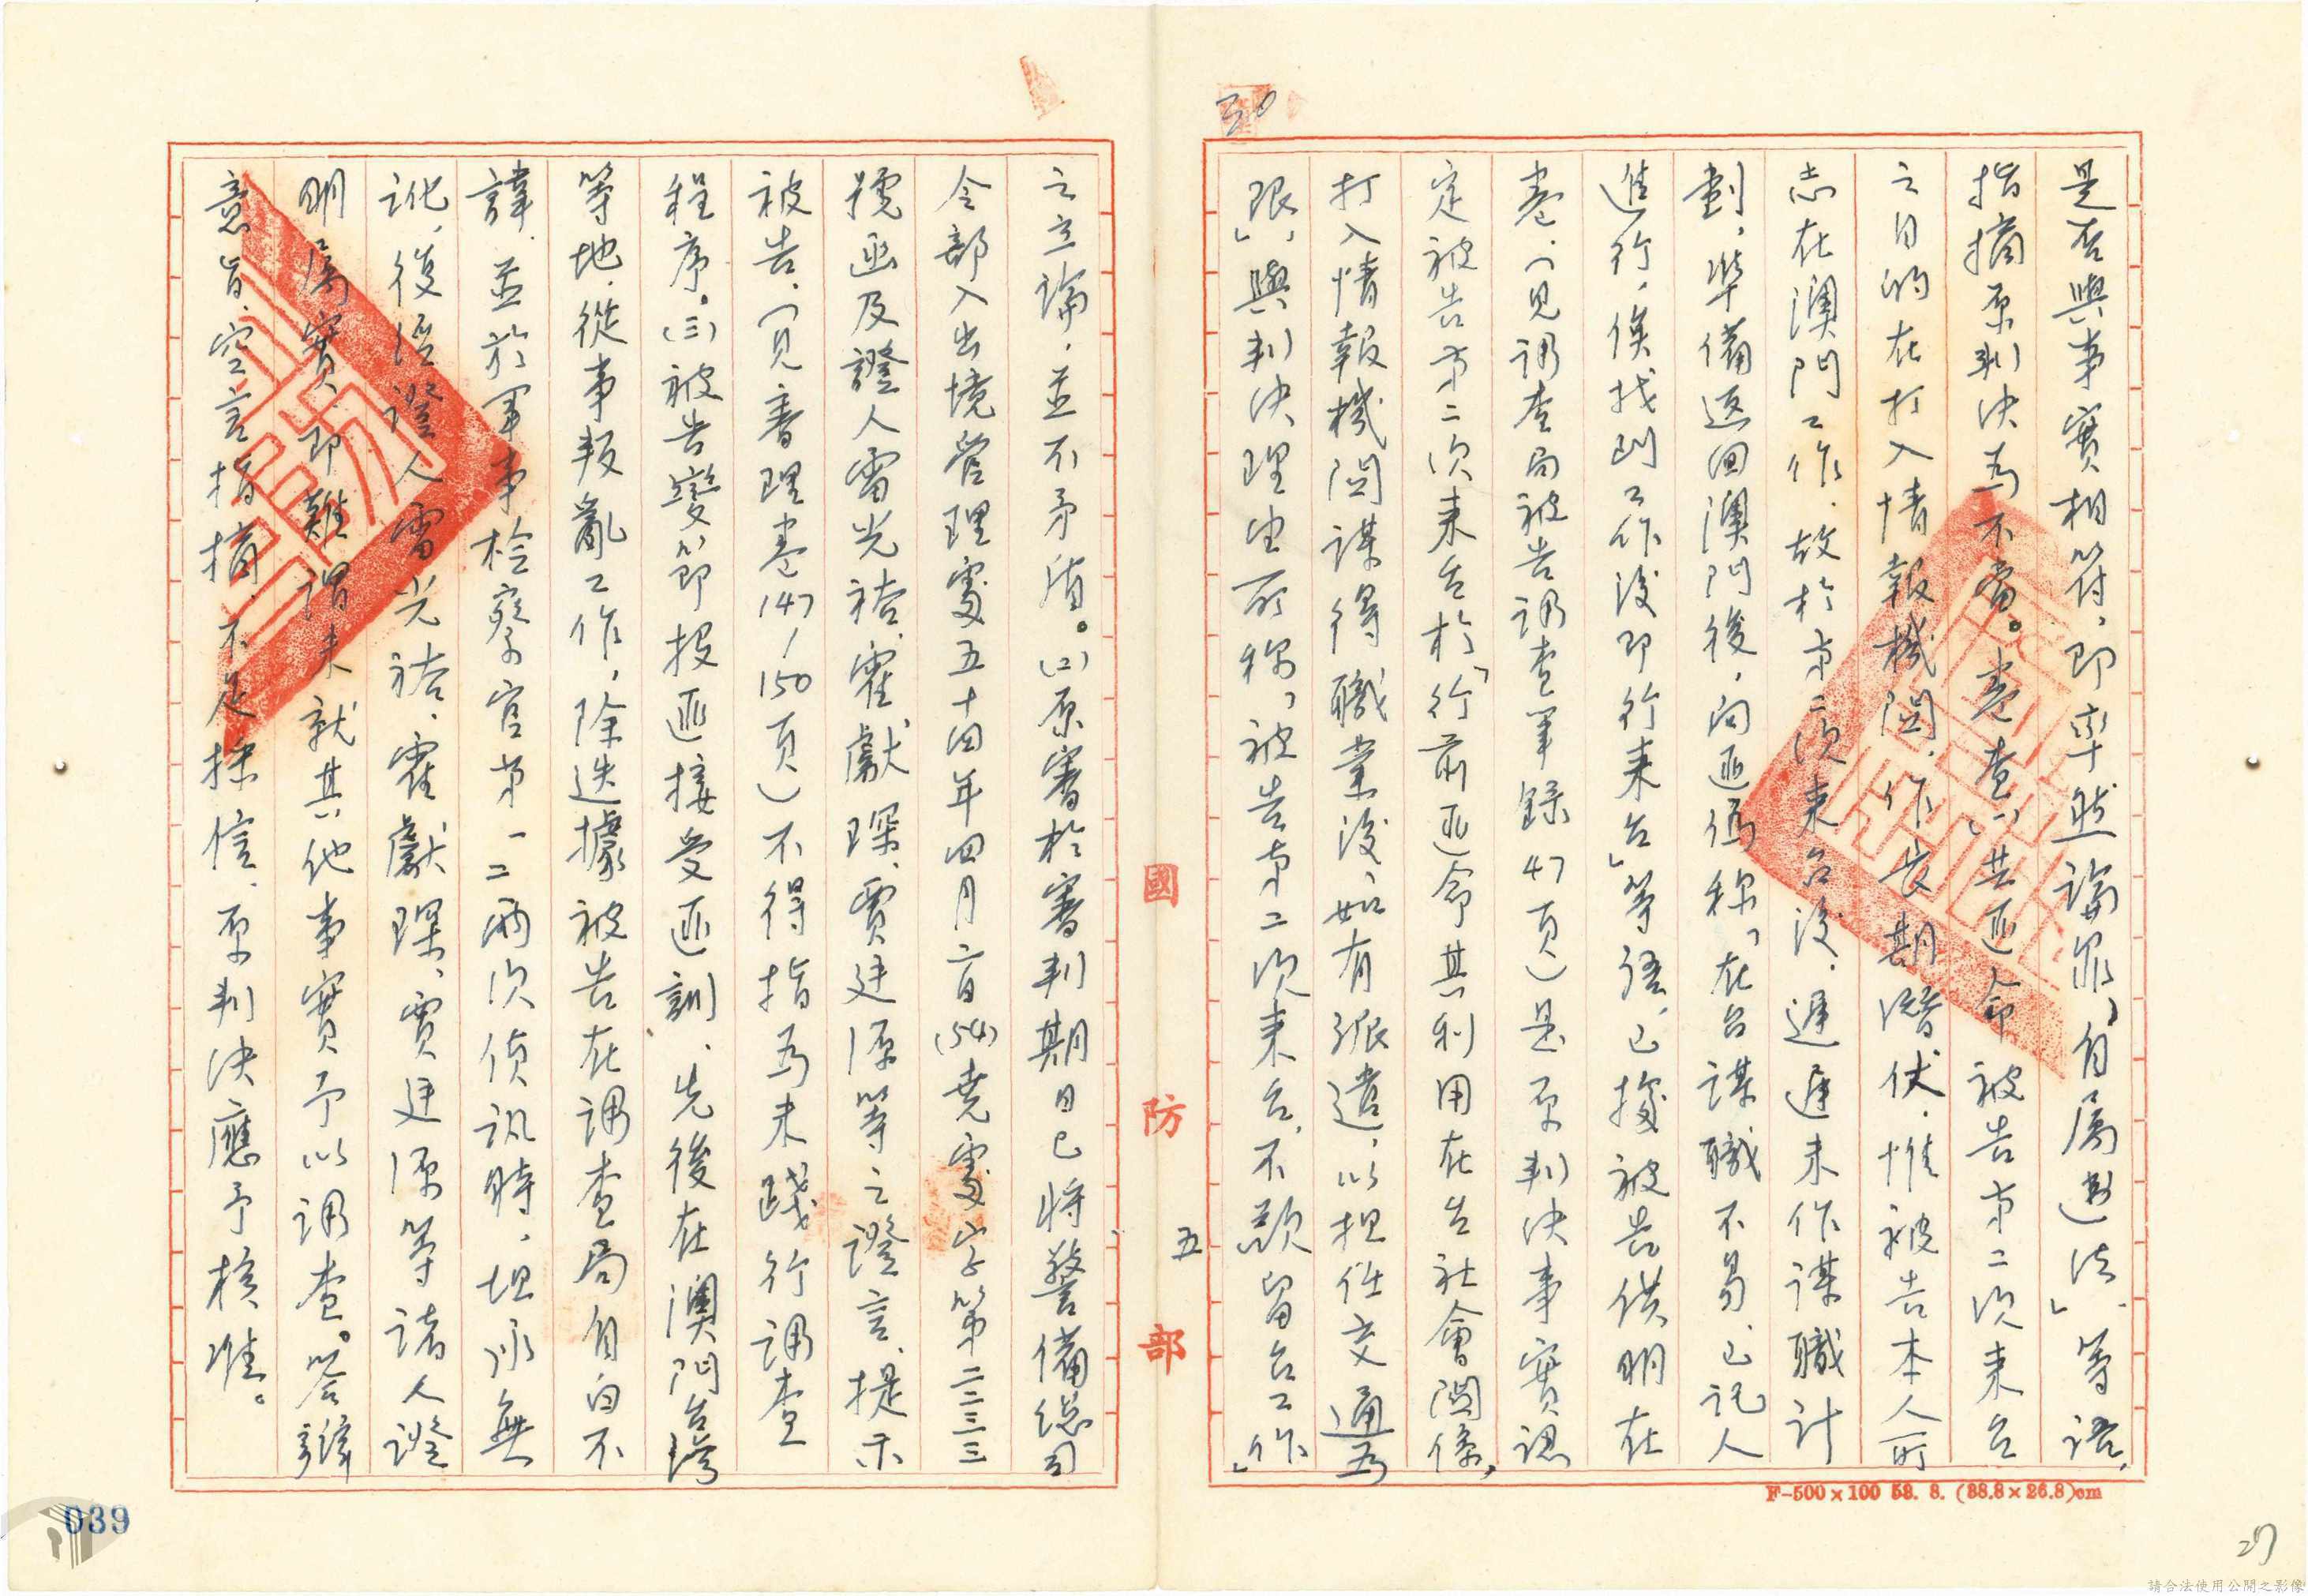 30
是否與事實相符,即率然論罪,自屬違法」等語,
指摘原判決為不當。卷查(一)共匪命被告第二次來台
之目的在打入情報機關,作長期潛伏,惟被告本人所
志在澳門工作,故於第二次來台後,遲遲未作謀職計
劃,準備返回澳門後,向匪偽稱「在台謀職不易,已託人
進行,俟找到工作後即行來台」等語,已據被告供明在
卷,(見調查局被告調查筆錄47頁)是原判決事實認
定被告第二次來台於「行前匪命其利用在台社會關係,
打入情報機關謀得職業後,如有派遣,以担任交通為
限」,與判決理由所稱「被告第二次來台,不願留台工作」
國防部
五
之立論,並不矛盾。(二)原審於審判期日已將警備總司
令部入出境管理處五十四年四月二日(54)堯處字第二三三三
號函及證人雷光祜、霍獻琛、賈廷源等之證言,提示
被告,(見審理卷147/150頁)不得指為未踐行調查
程序。(三)被告變節投匪接受匪訓,先後在澳門台灣
等地,從事叛亂工作,除迭據被告在調查局自白不
諱,並於軍事檢察官第一二兩次偵訊時,坦承無
訛,復經證人雷光祜、霍獻琛、賈廷源等諸人證
明屬實,即難謂未就其他事實予以調查。答辯
意旨,空言指摘,不足採信,原判決應予核准。
F-500×100 58. 8. (38.8×26.8)cm
039
27
請合法使用公開之影像